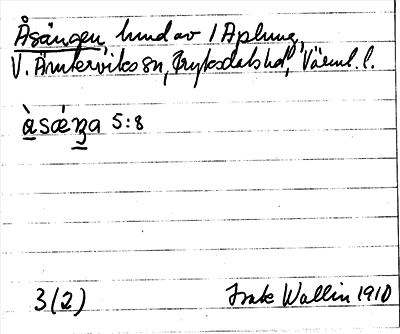 Åsängen, hmd av 1 Aplung,
V. Ämterviks sn, Fryksdals hd, Värml. l.
àsǽŋa 5:8
3(2) Frats Wallin 1910